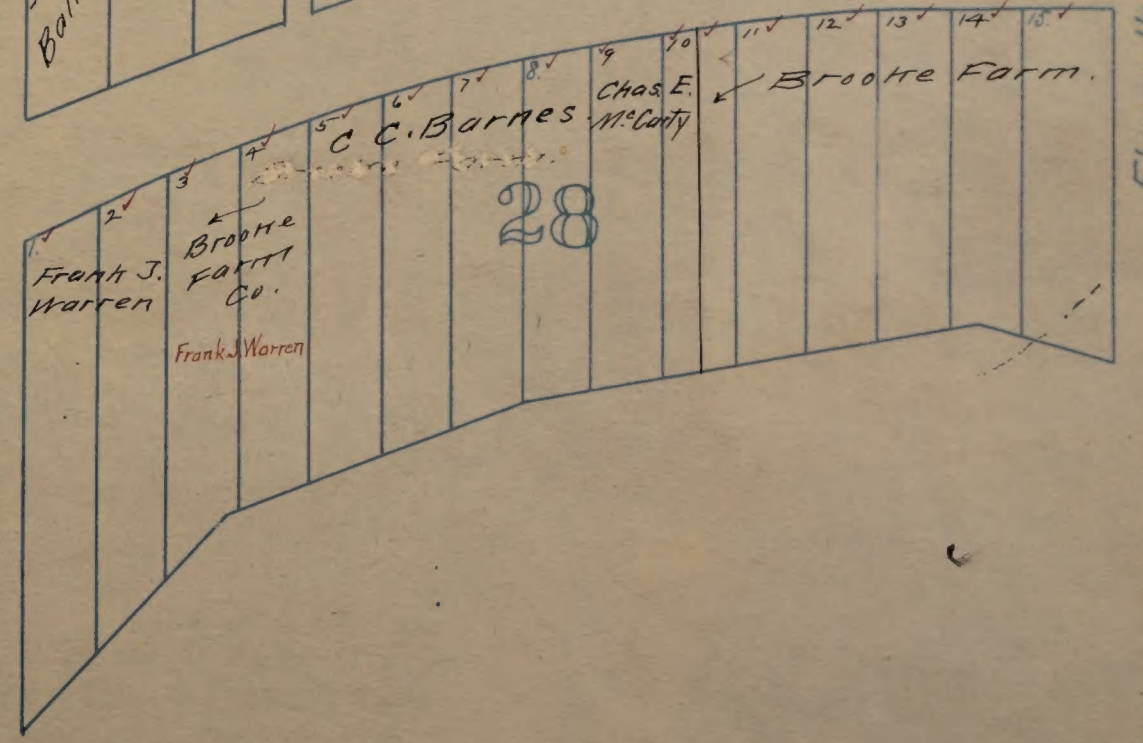 Bal
1. 2 3 4 5 6 7 8. 9 10 11 12 13 14 15.
Frank J.
Warren
Brooke
Farm
Co.
Frank J Warren
C C. Barnes
Chas. E.
McCarty
Brooke Farm.
28